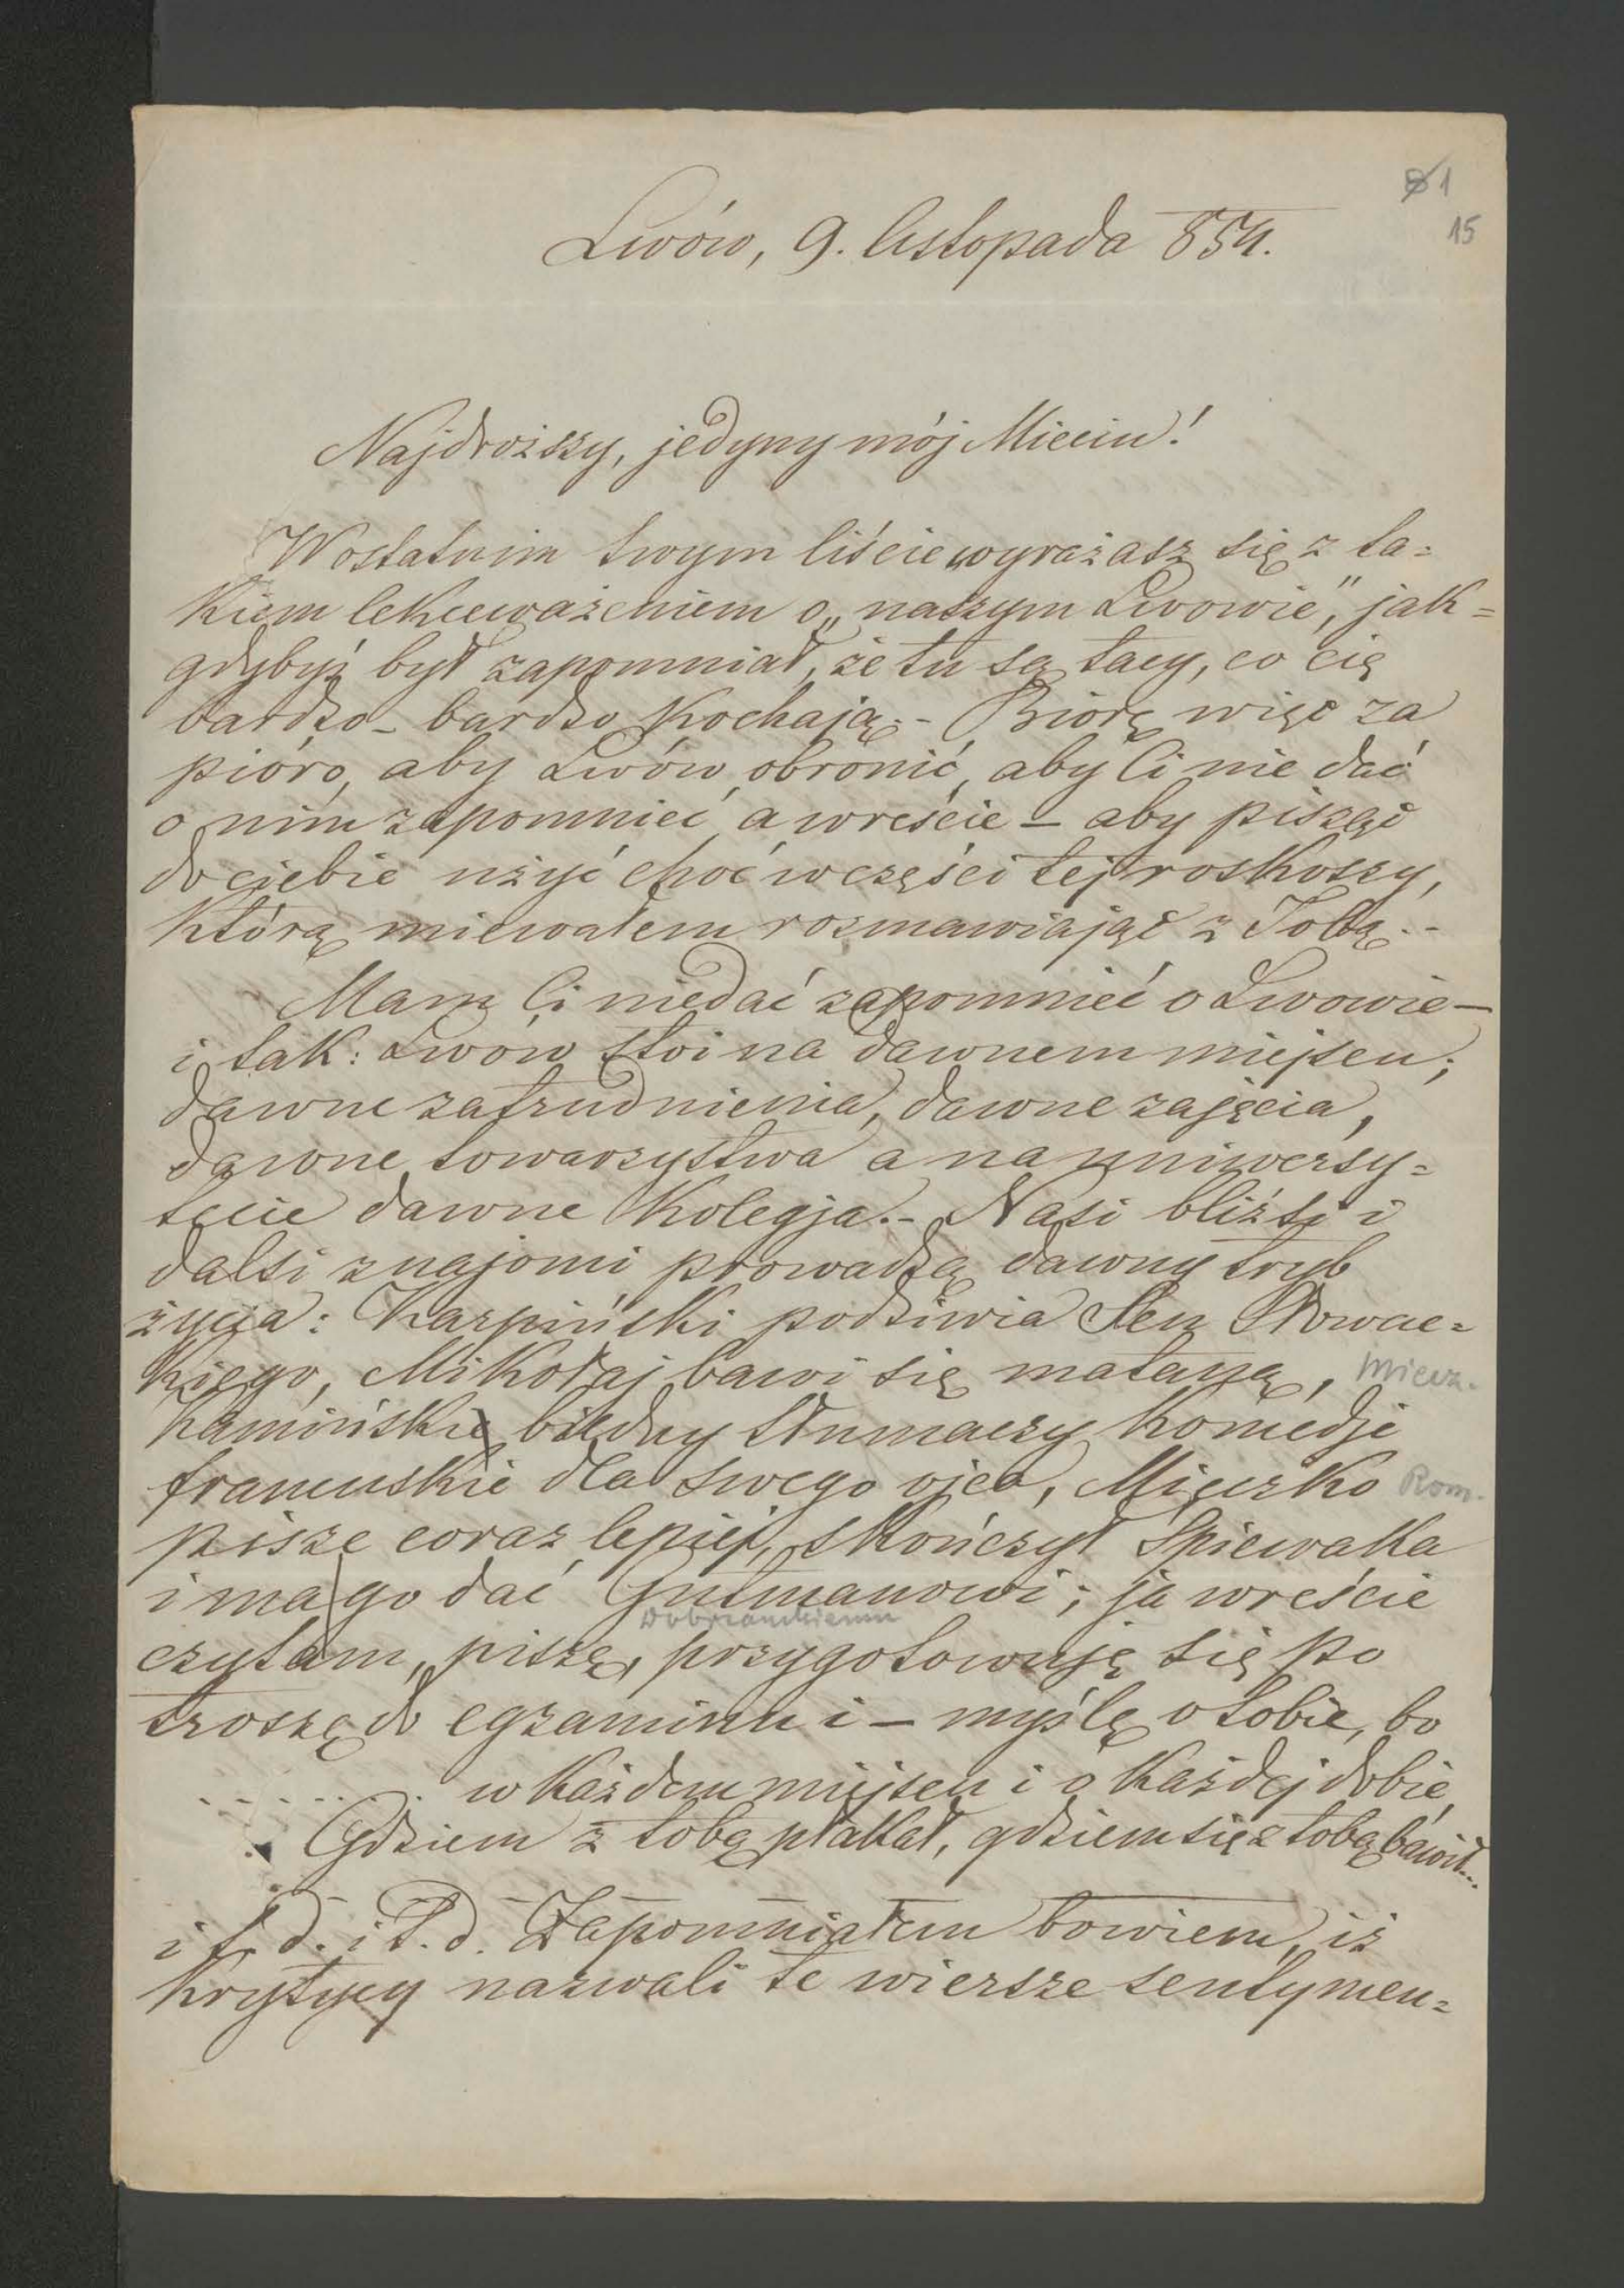 81
15
Lwów, 9. listopada 854.
Najdroższy, jedyny mój Mieciu!
W ostatnim twym liście wyrażasz się z ta=
kiem lekceważeniem o „naszym Lwowie”, jak=
gdybyś był zapomniał, że tu są tacy, co cię
bardzo – bardzo kochają. – Biorę więc za
pióro, aby Lwów obronić, aby Ci nie dać
o nim zapomnieć a wreście – aby pisząc
do ciebie użyć choć w części tej roskoszy,
którą miewałem rozmawiając z Tobą. –
Mam Ci niedać zapomnieć o Lwowie –
i tak: Lwów stoi na dawnem miejscu;
dawne zatrudnienia, dawne zajęcia,
dawne towarzystwa a na uniwersy=
tecie dawne kolegja. – Nasi bliźsi i
dalsi znajomi prowadzą dawny tryb
życia: Karpiński podziwia Sen Słowac=
kiego, Mikołaj bawi się mataną, Miecz.
Kamiński biedny tłumaczy komedje
francuskie dla swego ojca, Mieczko Rom.
pisze coraz lepiej, skończył Śpiewaka
i ma go dać Gutmanowi; ja wreście
Dobrzańskiemu
czytam, piszę, przygotowuję się po
troszę do egzaminu i – myślę o tobie, bo
. . . . . . . w każdem miejscu i o każdej dobie,
Gdziem z tobą płakał, gdziem się z tobą bawił...
i t. d. i t. d. Zapomniałem bowiem, iż
krytycy nazwali te wiersze sentymen=